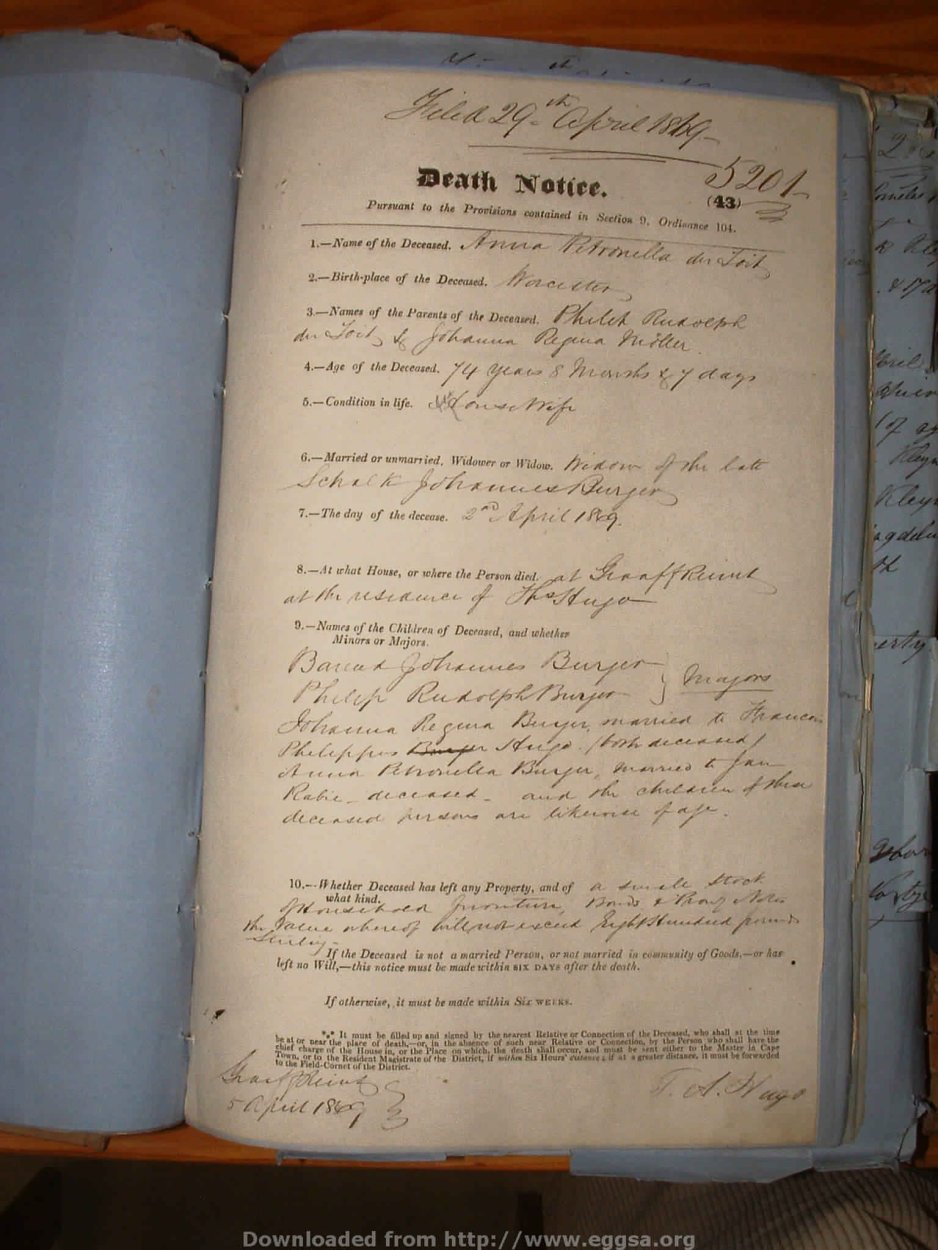 Filed 29th April 1869
Death Notice.
5201
(43)
Pursuant to the Provisions contained in Section 9, Ordinance 104.
1.—Name of the Deceased. Anna Petronella du Toit
2.—Birth-place of the Deceased. Worcester
3.—Names of the Parents of the Deceased. Philip Rudolph
du Toit & Johanna Regina Möller.
4.—Age of the Deceased. 74 years 8 Months & 7 days
5.—Condition in life. Housewife
6.—Married or unmarried, Widower or Widow. Widow of the late
Schalk Johannes Burger
7.—The day of the decease. 2nd April 1869.
8.—At what House, or where the Person died. at Graaff Reinet
at the residence of Ths Hugo
9.—Names of the Children of Deceased, and whether
Minors or Majors.
Barend Johannes Burger
Philip Rudolph Burger } Majors
Johanna Regina Burger, married to Francois
Philippus Burger Hugo (both deceased)
Anna Petronella Burger, married to Jan
Rabie - deceased - and the children of these
deceased persons are likewise of age.
10.—Whether Deceased has left any Property, and of a small stock
what kind.
of Household furniture, Bonds & Promy Notes
the Value whereof will not exceed Eight Hundred pounds
Sterling -
If the Deceased is not a married Person, or not married in community of Goods,—or has
left no Will,—this notice must be made within SIX DAYS after the death.
If otherwise, it must be made within SIX WEEKS.
*** It must be filled up and signed by the nearest Relative or Connection of the Deceased, who shall at the time
be at or near the place of death,—or, in the absence of such near Relative or Connection, by the Person who shall have the
chief charge of the House in, or the Place on which, the death shall occur, and must be sent either to the Master in Cape
Town, or to the Resident Magistrate of the District, if within Six Hours' distance; if at a greater distance, it must be forwarded
to the Field-Cornet of the District.
Graaff Reinet
5 April 1869
T. A. Hugo
Downloaded from http://www.eggsa.org